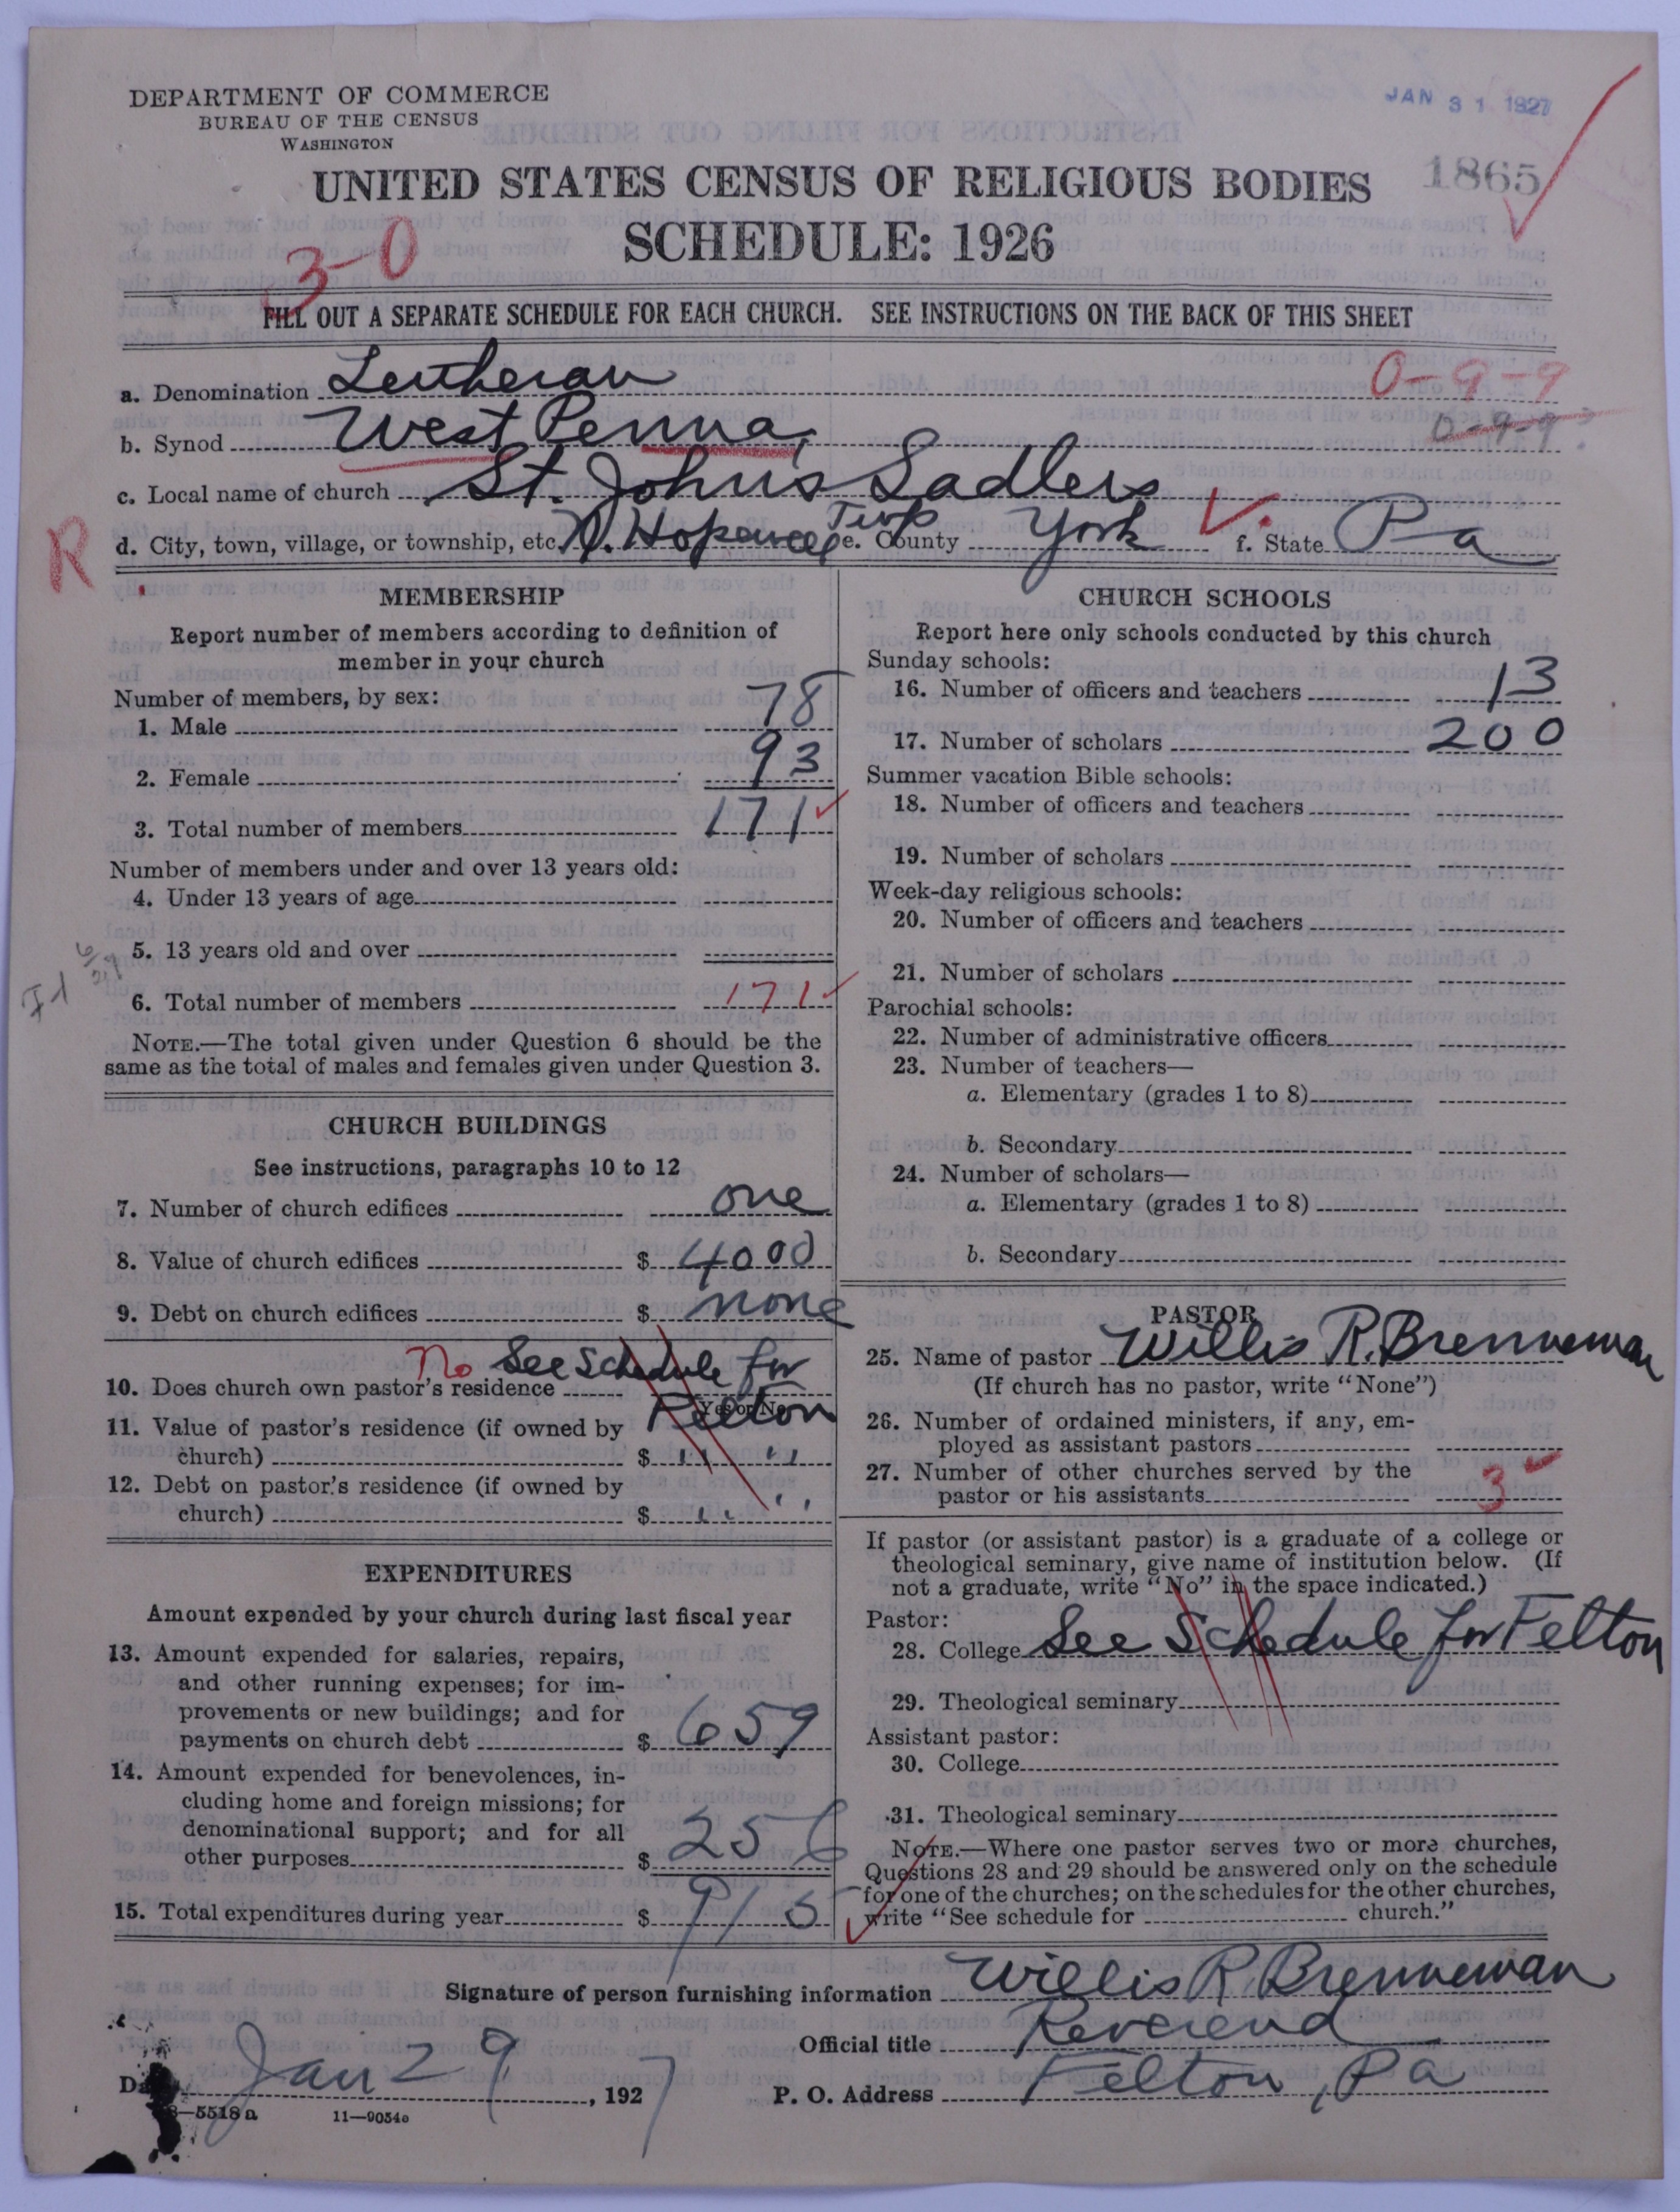 DEPARTMENT OF COMMERCE
BUREAU OF THE CENSUS
WASHINGTON
JAN 31 1927
1865
UNITED STATES CENSUS OF RELIGIOUS BODIES
SCHEDULE: 1926
3-0
FILL OUT A SEPARATE SCHEDULE FOR EACH CHURCH. SEE INSTRUCTIONS ON THE BACK OF THIS SHEET
a. Denomination Lutheran
0-9-9
b. Synod West Penna.
0-9-9?
c. Local name of church St. John's Sadlers
R
d. City, town, village, or township, etc. N. Hopewell Twp e. County York f. State Pa
MEMBERSHIP
Report number of members according to definition of
member in your church
Number of members, by sex:
1. Male 78
2. Female 93
3. Total number of members 171
Number of members under and over 13 years old:
4. Under 13 years of age
5. 13 years old and over
6. Total number of members 171
NOTE.—The total given under Question 6 should be the
same as the total of males and females given under Question 3.
CHURCH BUILDINGS
See instructions, paragraphs 10 to 12
7. Number of church edifices one
8. Value of church edifices $ 4000
9. Debt on church edifices $ none
No See Schedule for
10. Does church own pastor's residence
Yes or No
Felton
11. Value of pastor's residence (if owned by
church) $ " "
12. Debt on pastor's residence (if owned by
church) $ " "
EXPENDITURES
Amount expended by your church during last fiscal year
13. Amount expended for salaries, repairs,
and other running expenses; for im-
provements or new buildings; and for
payments on church debt $ 659
14. Amount expended for benevolences, in-
cluding home and foreign missions; for
denominational support; and for all
other purposes $ 256
15. Total expenditures during year $ 915
CHURCH SCHOOLS
Report here only schools conducted by this church
Sunday schools:
16. Number of officers and teachers 13
17. Number of scholars 200
Summer vacation Bible schools:
18. Number of officers and teachers
19. Number of scholars
Week-day religious schools:
20. Number of officers and teachers
21. Number of scholars
Parochial schools:
22. Number of administrative officers
23. Number of teachers—
a. Elementary (grades 1 to 8)
b. Secondary
24. Number of scholars—
a. Elementary (grades 1 to 8)
b. Secondary
PASTOR
25. Name of pastor Willis R. Brenneman
(If church has no pastor, write "None")
26. Number of ordained ministers, if any, em-
ployed as assistant pastors
27. Number of other churches served by the
pastor or his assistants 3
If pastor (or assistant pastor) is a graduate of a college or
theological seminary, give name of institution below. (If
not a graduate, write "No" in the space indicated.)
Pastor:
28. College See Schedule for Felton
29. Theological seminary
Assistant pastor:
30. College
31. Theological seminary
NOTE.—Where one pastor serves two or more churches,
Questions 28 and 29 should be answered only on the schedule
for one of the churches; on the schedules for the other churches,
write "See schedule for church."
Signature of person furnishing information Willis R. Brenneman
Official title Reverend
Jan 29, 1927
P. O. Address Felton, Pa
8—5518 a 11—9054a